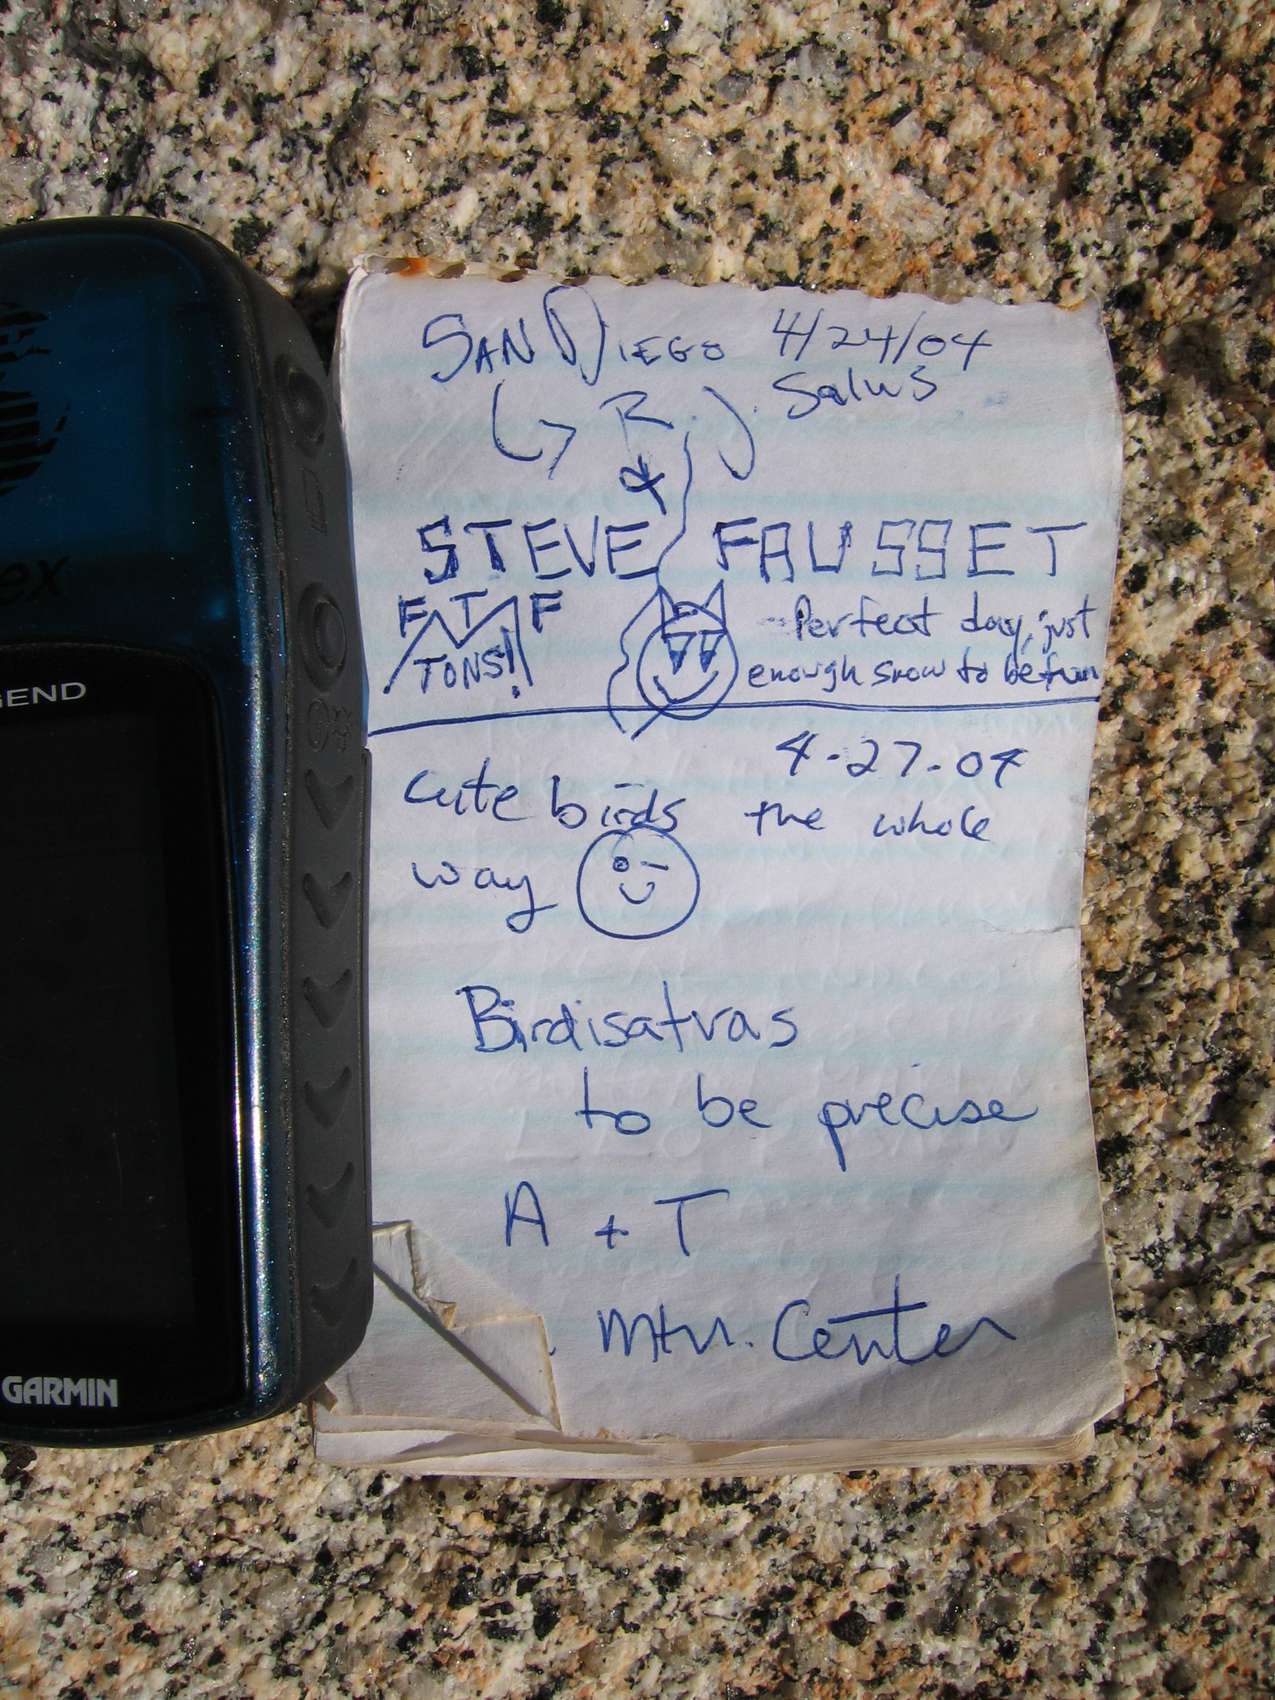 SAN DIEGO 4/24/04
R. J. Salus
&
STEVE FAUSSET
F T F
TONS!
Perfect day, just
enough snow to be fun
4-27-04
cute birds the whole
way
Birdisatvas
to be precise
A + T
Mtn. Center
ex
GEND
GARMIN